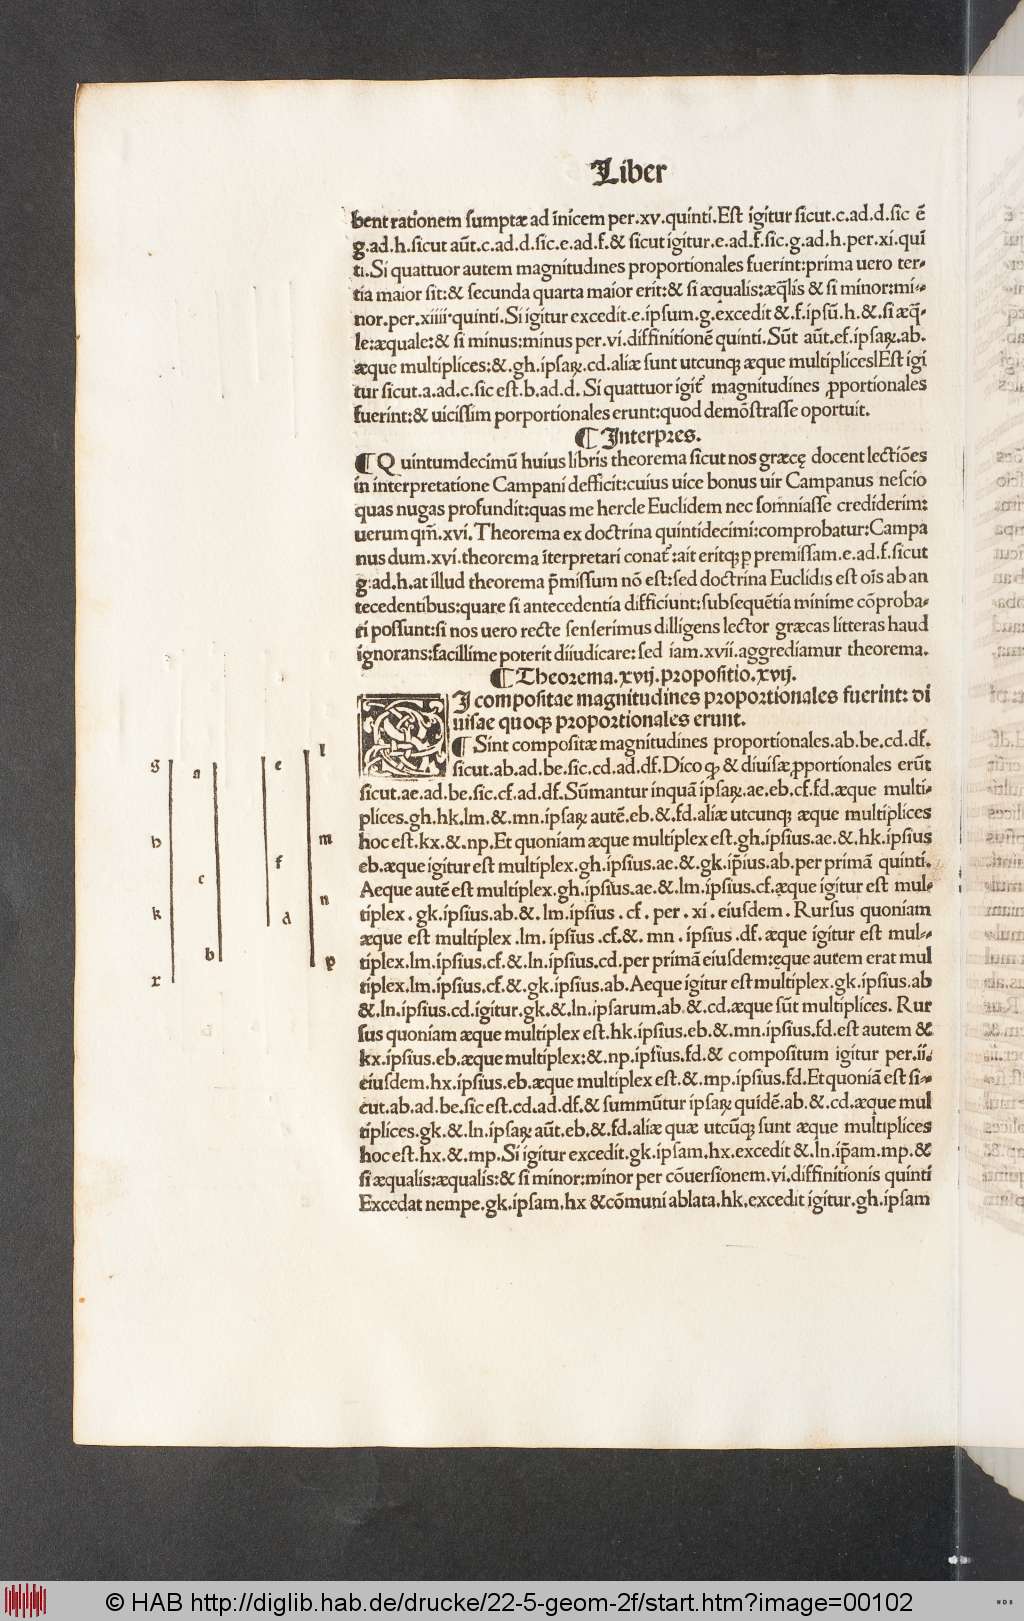 Liber
bent rationem sumptæ ad inuicem per.xv.quinti.Est igitur sicut.c.ad.d.sic ē
g.ad.h.sicut aūt.c.ad.d.sic.e.ad.f.& sicut igitur.e.ad.f.sic.g.ad.h.per.xi.quī
ti.Si quattuor autem magnitudines proportionales fuerint:prima uero ter⸗
tia maior sit:& secunda quarta maior erit:& si æqualis:æq̄lis & si minor:mi⸗
nor.per.xiiii.quinti.Si igitur excedit.e.ipsum.g.excedit &.f.ipsū.h.& si æq̄⸗
le:æquale:& si minus:minus per.vi.diffinitionē quinti.Sūt aūt.ef.ipsaꝝ.ab.
æque multiplices:&.gh.ipsaꝝ.cd.aliæ sunt utcunqꝫ æque multiplicesl Est igi
tur sicut.a.ad.c.sic est.b.ad.d.Si quattuor igit᷑ magnitudines ꝓportionales
fuerint:& uicissim porportionales erunt:quod demōstrasse oportuit.
¶ Interpres.
¶ Quintumdecimū huius libris theorema sicut nos græcę docent lectiōes
in interpretatione Campani defficit:cuius uice bonus uir Campanus nescio
quas nugas profundit:quas me hercle Euclidem nec somniasse crediderim:
uerum qm̄.xvi.Theorema ex doctrina quintidecimi:comprobatur:Campa
nus dum.xvi.theorema īterpretari conat᷑:ait eritqꝫ ꝑ premissam.e.ad.f.sicut
g.ad.h.at illud theorema p̄missum nō est:sed doctrina Euclidis est oīs ab an
tecedentibus:quare si antecedentia difficiunt:subsequētia minime cōproba⸗
ri possunt:si nos uero recte senserimus dilligens lector græcas litteras haud
ignorans:facillime poterit diiudicare:sed iam.xvii.aggrediamur theorema.
¶ Theorema.xvij.propositio.xvij.
SI compositae magnitudines proportionales fuerint: di
uisae quoqꝫ proportionales erunt.
¶ Sint compositæ magnitudines proportionales.ab.be.cd.df.
sicut.ab.ad.be.sic.cd.ad.df.Dico ꝙ & diuisæ ꝓportionales erūt
sicut.ae.ad.be.sic.cf.ad.df.Sūmantur inquā ipsaꝝ.ae.eb.cf.fd.æque multi⸗
plices.gh.hk.lm.&.mn.ipsaꝝ autē.eb.&.fd.aliæ utcunqꝫ æque multiplices
hoc est.kx.&.np.Et quoniam æque multiplex est.gh.ipsius.ae.&.hk.ipsius
eb.æque igitur est multiplex.gh.ipsius.ae.&.gk.ip̄ius.ab.per primā quinti.
Aeque autē est multiplex.gh.ipsius.ae.&.lm.ipsius.cf.æque igitur est mul⸗
tiplex.gk.ipsius.ab.&.lm.ipsius.cf.per.xi.eiusdem.Rursus quoniam
æque est multiplex.lm.ipsius.cf.&.mn.ipsius.df.æque igitur est mul⸗
tiplex.lm.ipsius.cf.&.ln.ipsius.cd.per primā eiusdem:ęque autem erat mul
tiplex.lm.ipsius.cf.&.gk.ipsius.ab.Aeque igitur est multiplex.gk.ipsius.ab
&.ln.ipsius.cd.igitur.gk.&.ln.ipsarum.ab.&.cd.æque sūt multiplices. Rur
sus quoniam æque multiplex est.hk.ipsius.eb.&.mn.ipsius.fd.est autem &
kx.ipsius.eb.æque multiplex:&.np.ipsius.fd.& compositum igitur per.ii.
eiusdem.hx.ipsius.eb.æque multiplex est.&.mp.ipsius.fd.Et quoniā est si⸗
cut.ab.ad.be.sic est.cd.ad.df.& summūtur ipsaꝝ quidē.ab.&.cd.æque mul
tiplices.gk.&.ln.ipsaꝝ aūt.eb.&.fd.aliæ quæ utcūqꝫ sunt æque multiplices
hoc est.hx.&.mp.Si igitur excedit.gk.ipsam.hx.excedit &.ln.ip̄am.mp.&
si æqualis:æqualis:& si minor:minor per cōuersionem.vi.diffinitionis quinti
Excedat nempe.gk.ipsam.hx & cōmuni ablata.hk.excedit igitur.gh.ipsam
g a e l
h c f m
k b d n
x p
© HAB http://diglib.hab.de/drucke/22-5-geom-2f/start.htm?image=00102